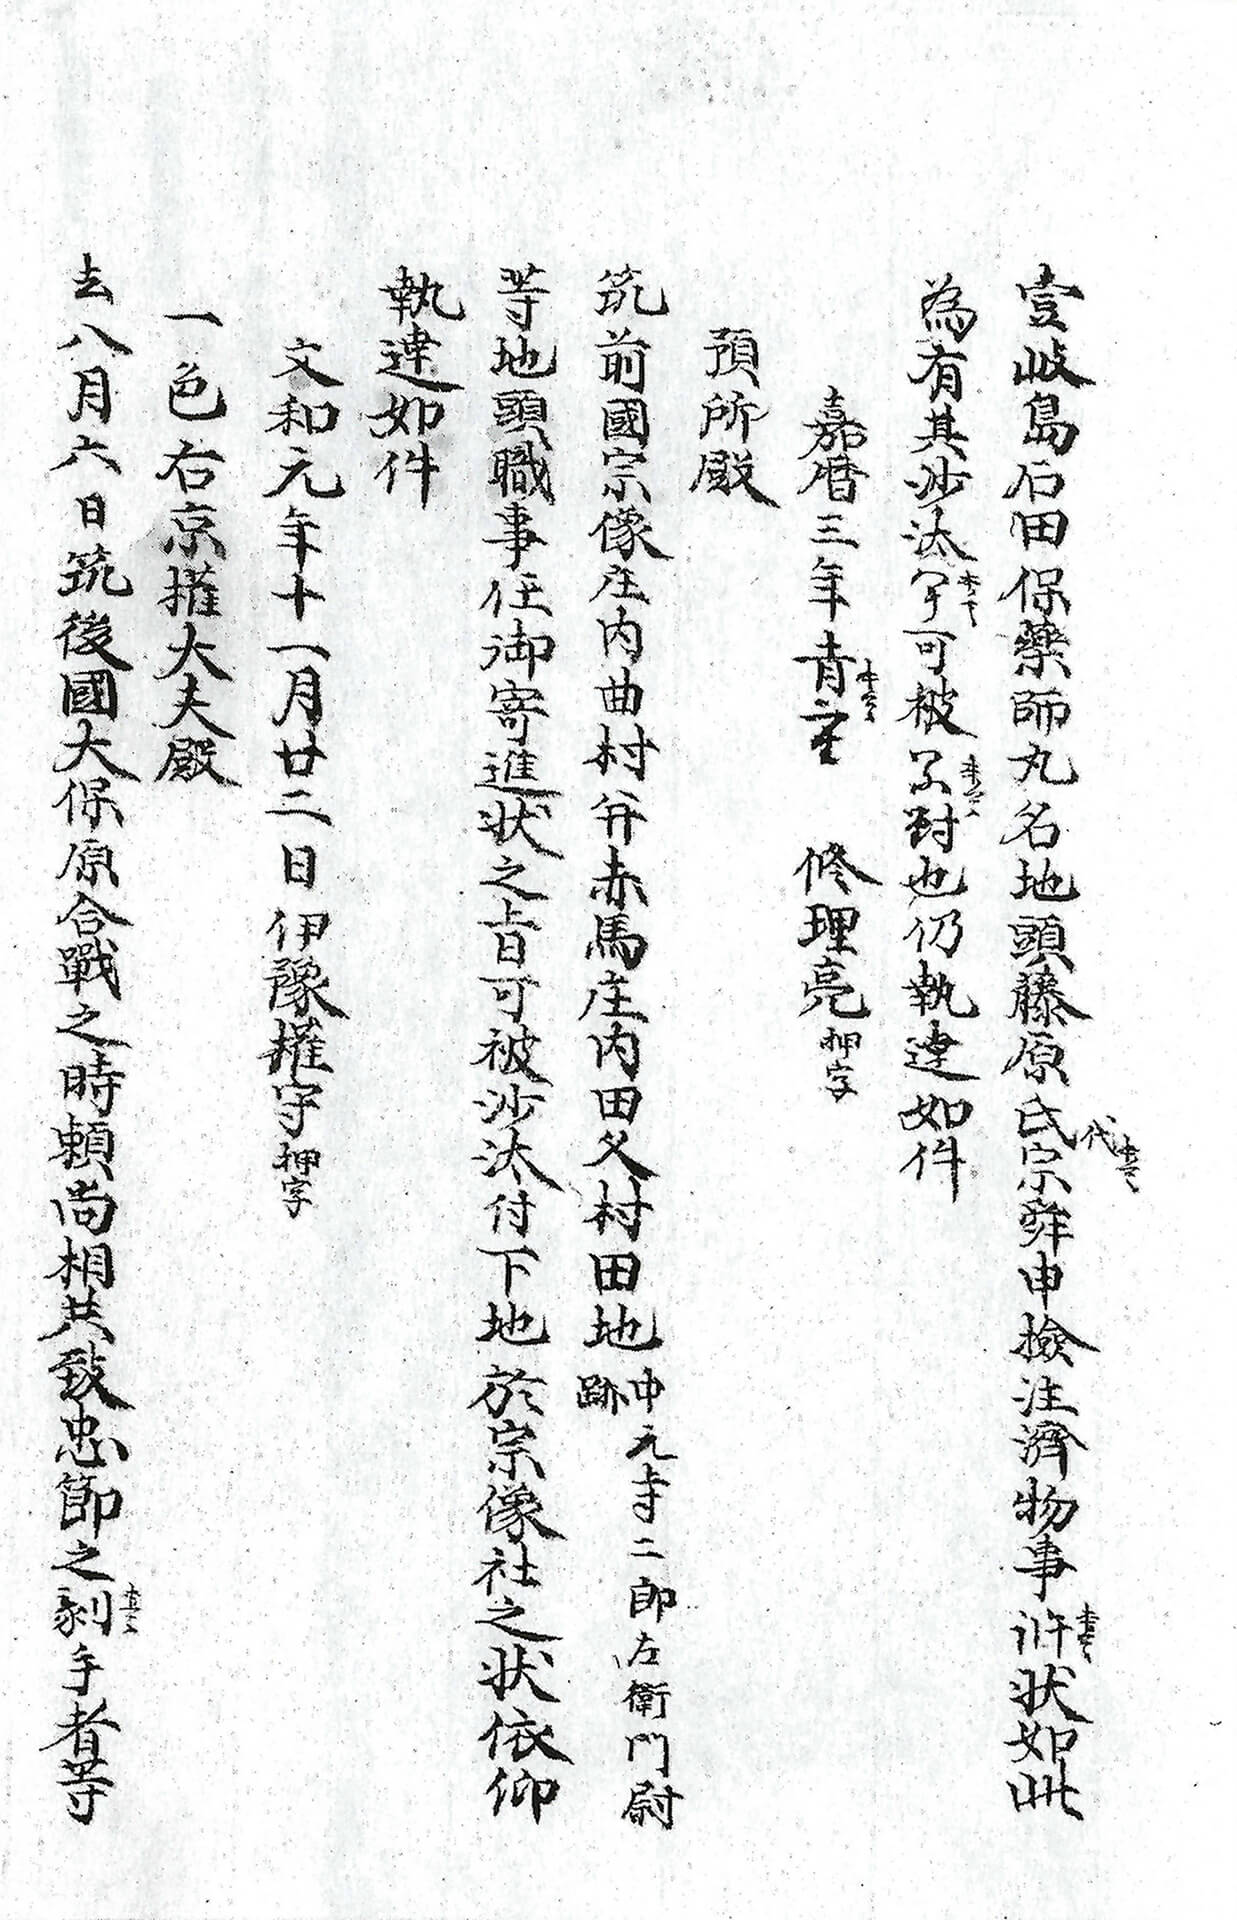 壹岐島石田保藥師丸名地頭藤原氏代宗舜申檢注濟物事訴状如此
為有其沙汰可被対也仍執達如件
嘉暦三年 修理亮押字
預所殿
筑前國宗像庄内曲村并赤馬庄内田久村田地中元寺二郎左衛門尉跡
等地頭職事任御寄進状之旨可被沙汰付下地於宗像社之状依仰
執達如件
文和元年十一月廿二日伊豫權守押字
一色右京權大夫殿
去八月六日筑後國大保原合戰之時頼尚相共致忠節之手者等